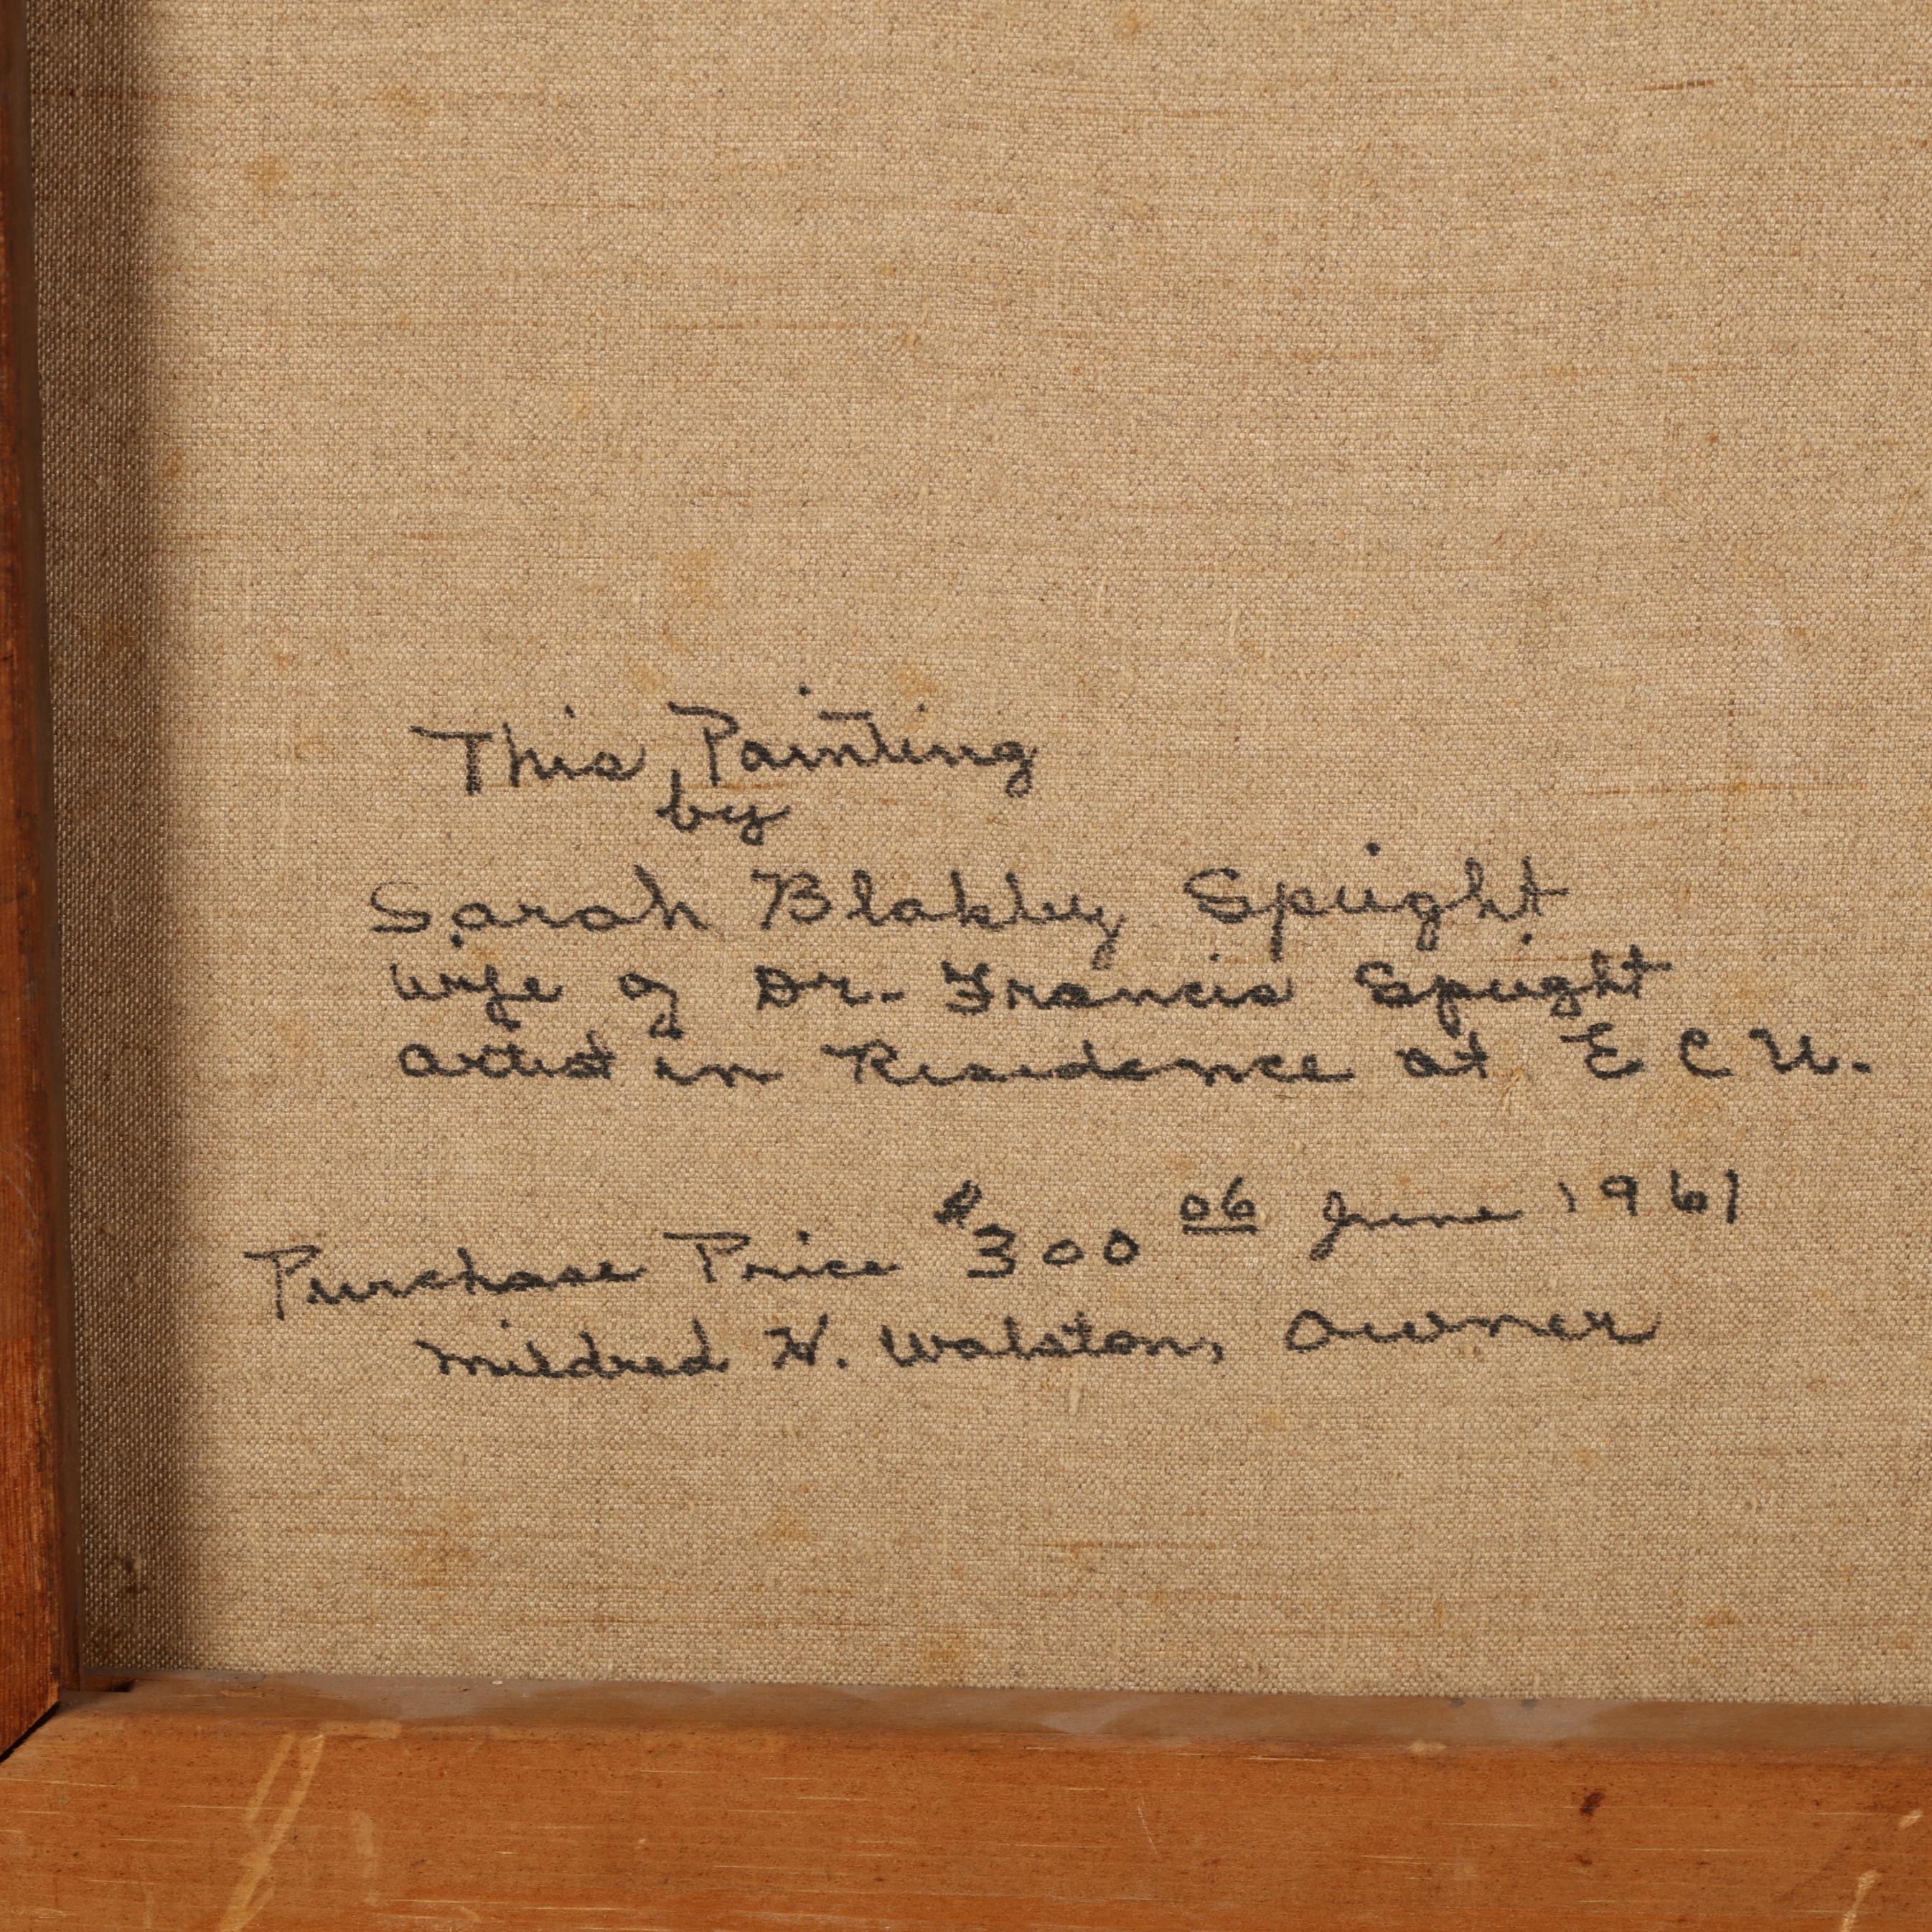 This Painting
by
Sarah Blakley Speight
wife of Dr. Francis Speight
artist in Residence at E C U.
Purchase Price $300 00 June 1961
Mildred H. Walston, Owner